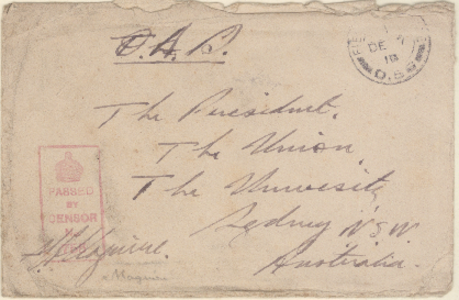 O.A.S.
DE
18
The President.
The Union,
The University
Sydney NSW
Australia.
PASSED
BY
CENSOR